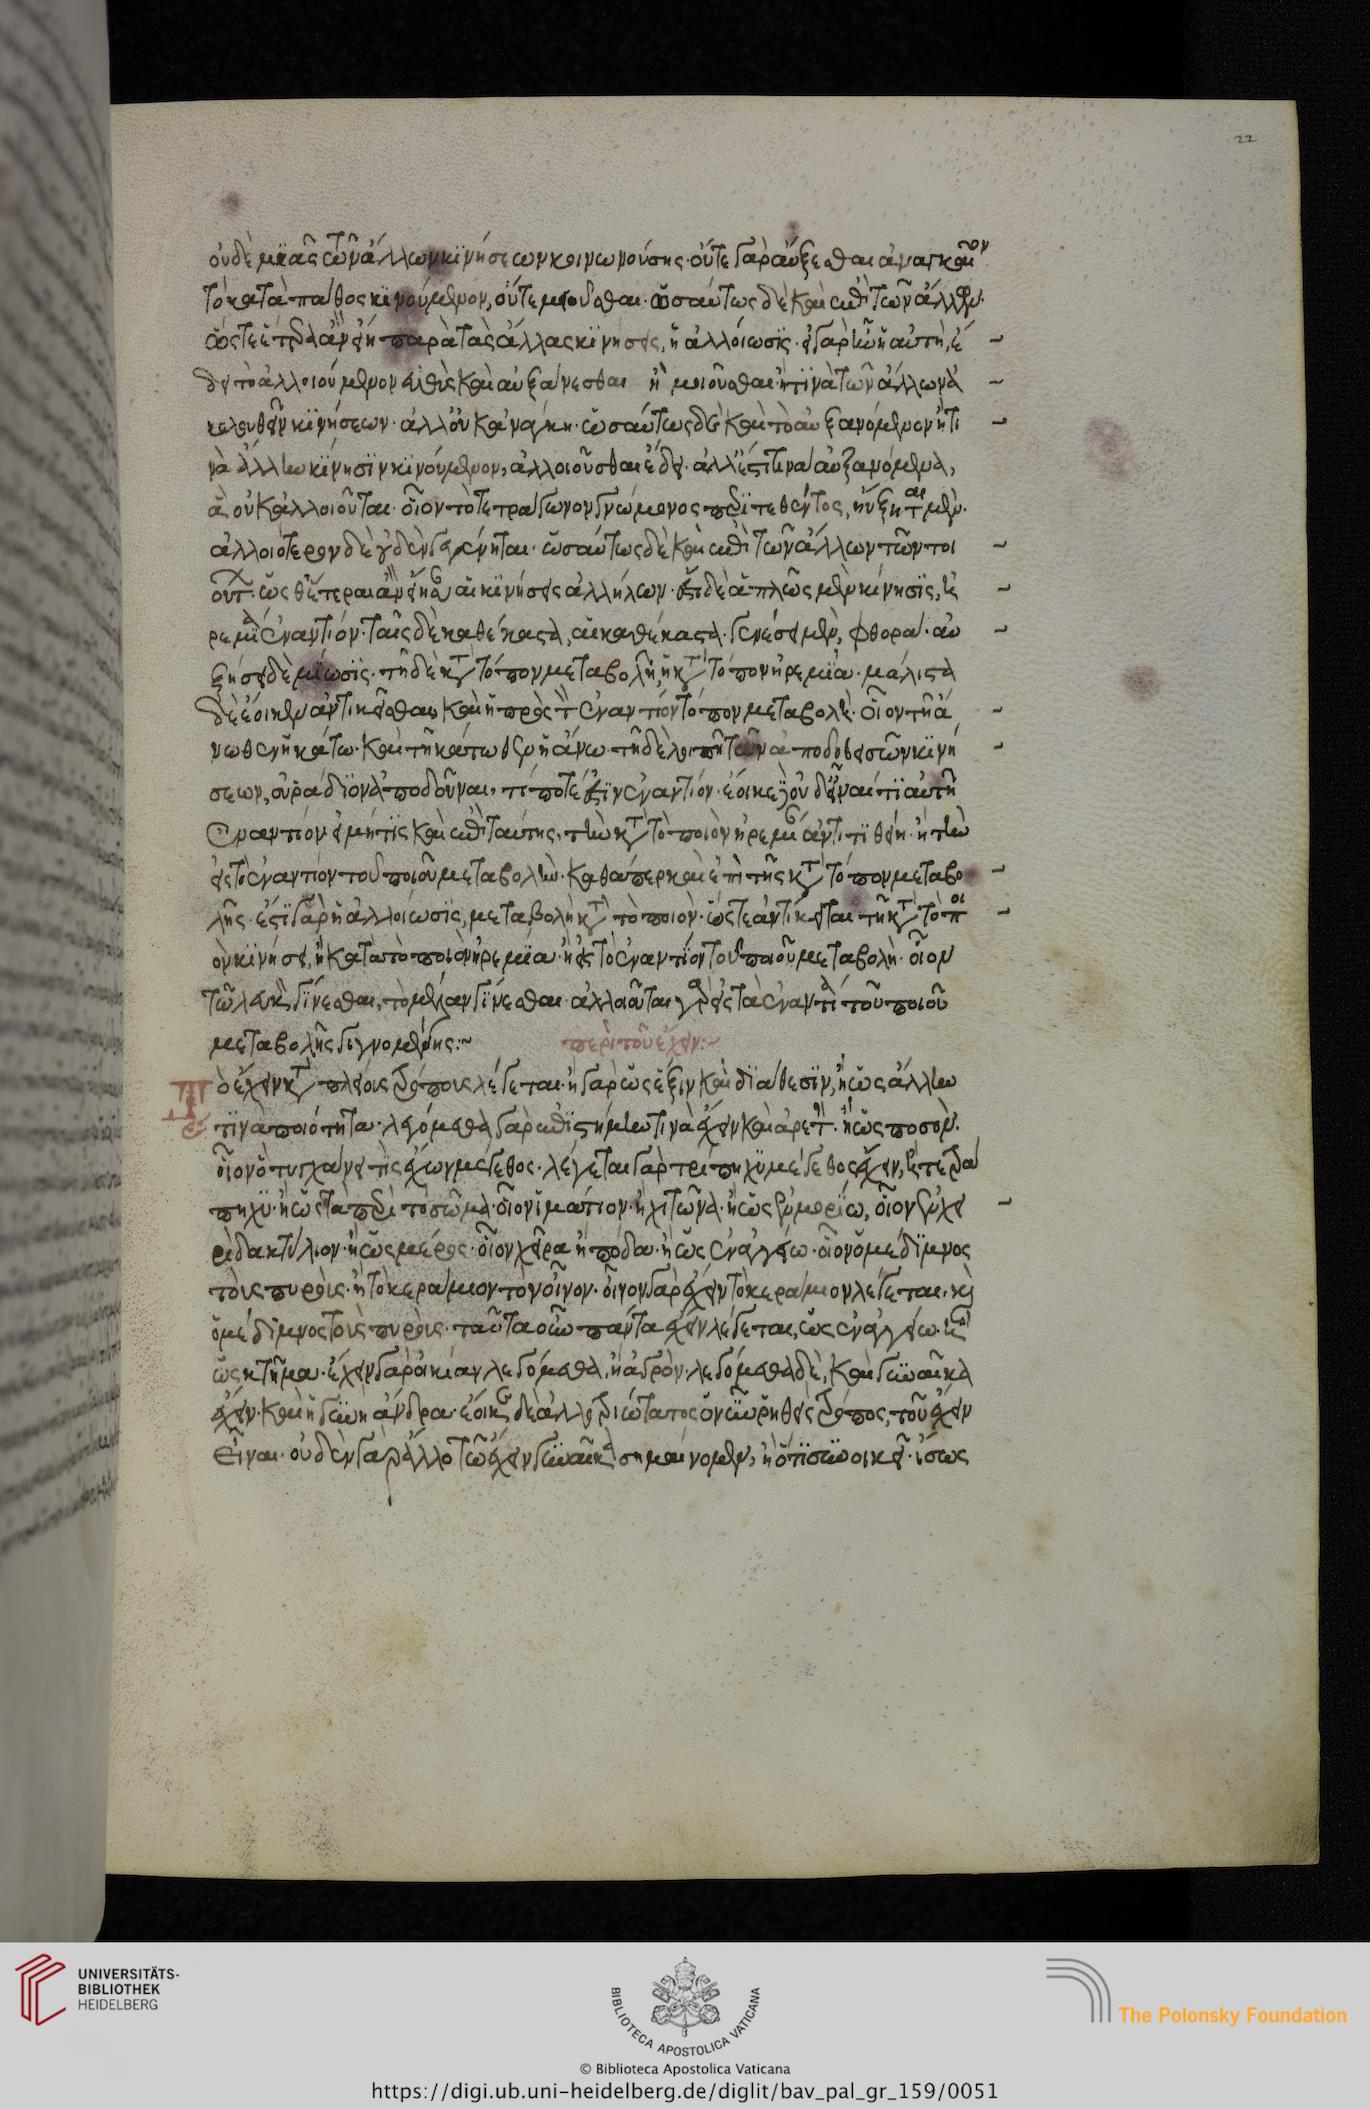 22
οὐδὲ μιᾶς τῶν ἄλλων κινήσεων κοινωνούσης· οὔτε γὰρ αὔξεσθαι ἀναγκαῖον
τὸ κατὰ πάθος κινούμενον, οὔτε μειοῦσθαι· ὡσαύτως δὲ καὶ ἐπὶ τῶν ἄλλων·
ὥστε ἑτέρα ἂν εἴη παρὰ τὰς ἄλλας κινήσεις, ἡ ἀλλοίωσις· εἰ γὰρ ἦν ἡ αὐτὴ, ἔ
δει τὸ ἀλλοιούμενον εὐθὺς καὶ αὐξάνεσθαι ἢ μειοῦσθαι ἤ τινα τῶν ἄλλων ἀ
κολουθεῖν κινήσεων· ἀλλ' οὐκ ἀνάγκη· ὡσαύτως δὲ καὶ τὸ αὐξανόμενον ἤ τι
νὰ ἄλλην κίνησιν κινούμενον, ἀλλοιοῦσθαι ἔδει· ἀλλ' ἔστι τινὰ αὐξανόμενα,
ἃ οὐκ ἀλλοιοῦται· οἷον τὸ τετράγωνον γνώμονος περιτεθέντος, ηὔξηται μὲν·
ἀλλοιότερον δὲ οὐδὲν γεγένηται· ὡσαύτως δὲ καὶ ἐπὶ τῶν ἄλλων τῶν τοι
ούτων· ὥσθ' ἕτεραι ἂν εἴησαν αἱ κινήσεις ἀλλήλων· ἔστι δὲ ἁπλῶς μὲν κίνησις, ἠ
ρεμία ἐναντίον· ταῖς δὲ καθέκαστα, αἱ καθέκαστα· γενέσει μὲν, φθορά· αὐ
ξήσει δὲ μείωσις· τῇ δὲ κατὰ τόπον μεταβολῇ, ἡ κατὰ τόπον ἠρεμία· μάλιστα
δὲ ἔοικεν ἀντικεῖσθαι, καὶ ἡ πρὸς τὸν ἐναντίον τόπον μεταβολὴ· οἷον τῇ ἄ
νωθεν ἡ κάτω· καὶ τῇ κάτωθεν ἡ ἄνω· τῇ δὲ λοιπῇ τῶν ἀποδοθεισῶν κινή
σεων, οὐ ῥάδιον ἀποδοῦναι, τί ποτέ ἐστιν ἐναντίον· ἔοικε δ' οὐδὲν εἶναί τι αὐτῇ
ἐναντίον εἰ μή τις καὶ ἐπὶ ταύτης, τὴν κατὰ τὸ ποιὸν ἠρεμίαν ἀντιτιθείη· ἢ τὴν
εἰς τὸ ἐναντίον τοῦ ποιοῦ μεταβολὴν· καθάπερ καὶ ἐπὶ τῆς κατὰ τόπον μεταβο
λῆς· ἔστι γὰρ ἡ ἀλλοίωσις, μεταβολὴ κατὰ τὸ ποιὸν· ὥστε ἀντίκειται τῇ κατὰ τὸ ποι
ὸν κινήσει, ἡ κατὰ τὸ ποιὸν ἠρεμία· ἢ ἡ εἰς τὸ ἐναντίον τοῦ ποιοῦ μεταβολὴ· οἷον
τῷ λευκὸν γίνεσθαι, τὸ μέλαν γίνεσθαι· ἀλλοιοῦται γὰρ εἰς τὰ ἐναντία τοῦ ποιοῦ
μεταβολῆς γιγνομένης:~ περὶ τοῦ ἔχειν:~
Τὸ ἔχειν κατὰ πλείους τρόπους λέγεται· ἢ γὰρ ὡς ἕξιν καὶ διάθεσιν, ἢ ὡς ἄλλην
τινὰ ποιότητα· λεγόμεθα γὰρ ἐπιστήμην τινὰ ἔχειν καὶ ἀρετήν· ἢ ὡς ποσὸν·
οἷον ὃ τυγχάνει τις ἔχων μέγεθος· λέγεται γὰρ τρίπηχυ μέγεθος ἔχειν, ἢ τετρά
πηχυ· ἢ ὡς τὰ περὶ τὸ σῶμα· οἷον ἱμάτιον· ἢ χιτῶνα· ἢ ὡς ἐν μορίῳ, οἷον ἐν χει
ρὶ δακτύλιον· ἢ ὡς μέρος· οἷον χεῖρα ἢ πόδα· ἢ ὡς ἐν ἀγγείῳ· οἷον ὁ μέδιμνος
τοὺς πυροὺς· ἢ τὸ κεράμιον τὸν οἶνον· οἶνον γὰρ ἔχειν τὸ κεράμιον λέγεται· καὶ
ὁ μέδιμνος τοὺς πυροὺς· ταῦτα οὖν πάντα ἔχειν λέγεται, ὡς ἐν ἀγγείῳ· ἢ
ὡς κτῆμα· ἔχειν γὰρ οἰκίαν λεγόμεθα, ἢ ἀγρὸν· λεγόμεθα δὲ, καὶ γυναῖκα
ἔχειν· καὶ ἡ γυνὴ ἄνδρα· ἔοικε δὲ ἀλλοτριώτατος ὁ νῦν ῥηθεὶς τρόπος, τοῦ ἔχειν
εἶναι· οὐδὲν γὰρ ἄλλο τῷ ἔχειν γυναῖκα σημαίνομεν, ἢ ὅτι συνοικεῖ· ἴσως
UNIVERSITÄTS-
BIBLIOTHEK
HEIDELBERG
BIBLIOTECA APOSTOLICA VATICANA
The Polonsky Foundation
© Biblioteca Apostolica Vaticana
https://digi.ub.uni-heidelberg.de/diglit/bav_pal_gr_159/0051